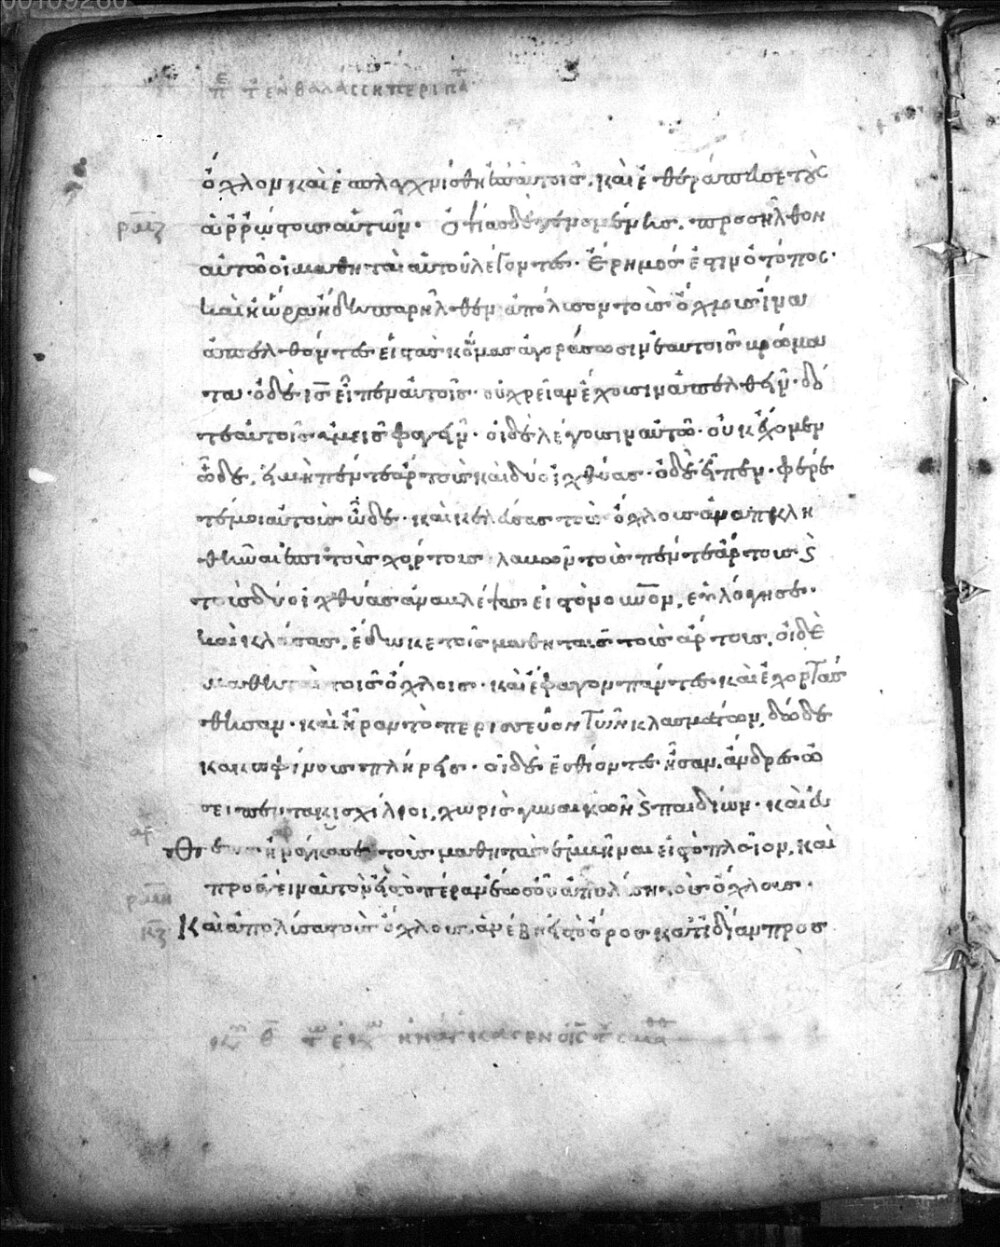 00109260
π τ ἐν θαλάσση περιπα
ὄχλον καὶ ἐσπλαγχνίσθη ἐπ αὐτοῖς, καὶ ἐθεράπευσε τοὺς
ρμζ ἀρρώστους αὐτῶν. Ὀψίας δὲ γενομένης, προσῆλθον
αὐτῶ οἱ μαθηταὶ αὐτοῦ λέγοντες· Ἔρημός ἐστιν ὁ τόπος·
καὶ ἡ ὥρα ἤδη παρῆλθεν ἀπόλυσον τοὺς ὄχλους ἵνα
ἀπελθόντες εἰς τὰς κώμας ἀγοράσωσιν ἑαυτοῖς βρώμα
τα· ὁ δὲ ις εἶπεν αὐτοῖς· οὐ χρείαν ἔχουσιν ἀπελθεῖν· δό
τε αὐτοῖς ὑμεῖς φαγεῖν· οἱ δὲ λέγουσιν αὐτῶ· οὐκ ἔχομεν
ὧδε, εἰ μὴ πέντε ἄρτους καὶ δύο ἰχθύας· ὁ δὲ εἶπεν· φέρε
τέ μοι αὐτοὺς ὧδε· καὶ κελεύσας τοὺς ὄχλους ἀνακλη
θῆναι ἐπὶ τοὺς χόρτους λαβὼν τοὺς πέντε ἄρτους ϛ
τοὺς δύο ἰχθύας ἀναβλέψας εἰς τὸν οὐνον, εὐλόγησε·
καὶ κλάσας, ἔδωκε τοῖς μαθηταῖς τοὺς ἄρτους, οἱ δὲ
μαθηταὶ τοῖς ὄχλοις· καὶ ἔφαγον πάντες καὶ ἐχορτάσ
θησαν· καὶ ἦραν τὸ περισσεῦον τῶν κλασμάτων, δώδε
κα κοφίνους πλήρεις· οἱ δὲ ἐσθίοντες ἦσαν ἄνδρες ὡ
σεὶ πεντακισχίλιοι, χωρὶς γυναικῶν ϛ παιδίων· καὶ εὐ
θέως ἠνάγκασε τοὺς μαθητὰς ἐμβῆναι εἰς τὸ πλοῖον, καὶ
προάγειν αὐτὸν εἰς τὸ πέραν ἕως οὗ ἀπολύση τοὺς ὄχλους·
ρμη
κζ Καὶ ἀπολύσας τοὺς ὄχλους, ἀνέβη εἰς τὸ ὄρος κατ ἰδίαν προσ